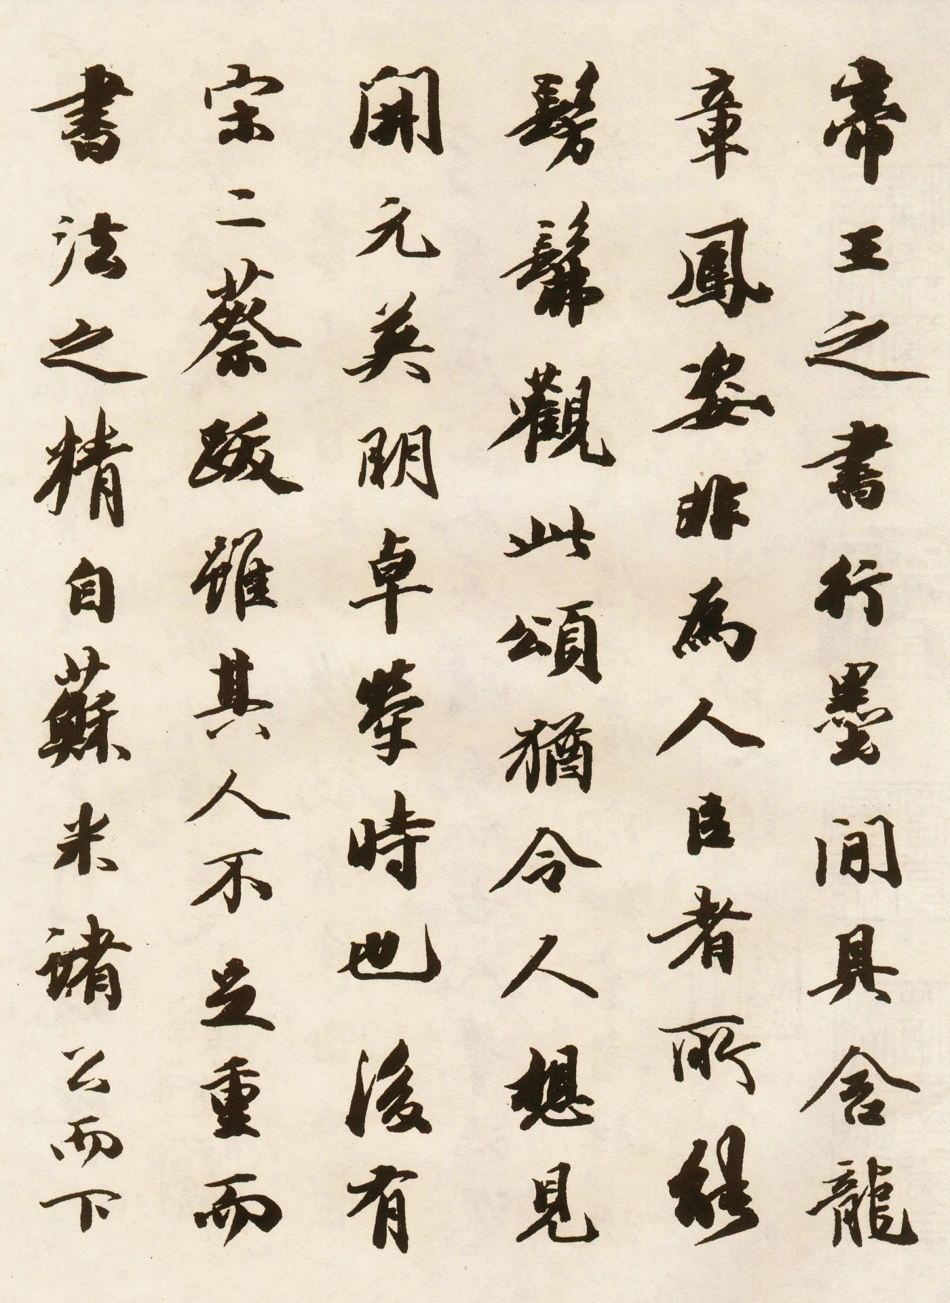 帝王之書行墨間具含龍
章鳳姿非為人臣者所能
髣髴觀此頌猶令人想見
開元英明卓犖時也後有
宋二蔡跋雖其人不足重而
書法之精自蘇米諸公而下